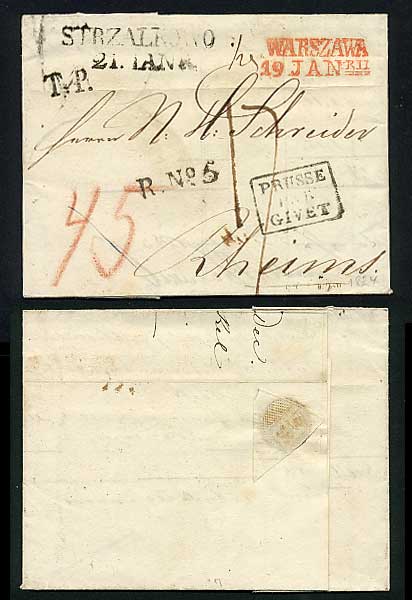 STRZALKOWO
21. IANR.
WARSZAWA
19 JAN RII
T.P.
Herrn N. H. Schreider
R. No 5
PRUSSE
PAR
GIVET
45
Rheims.
1824